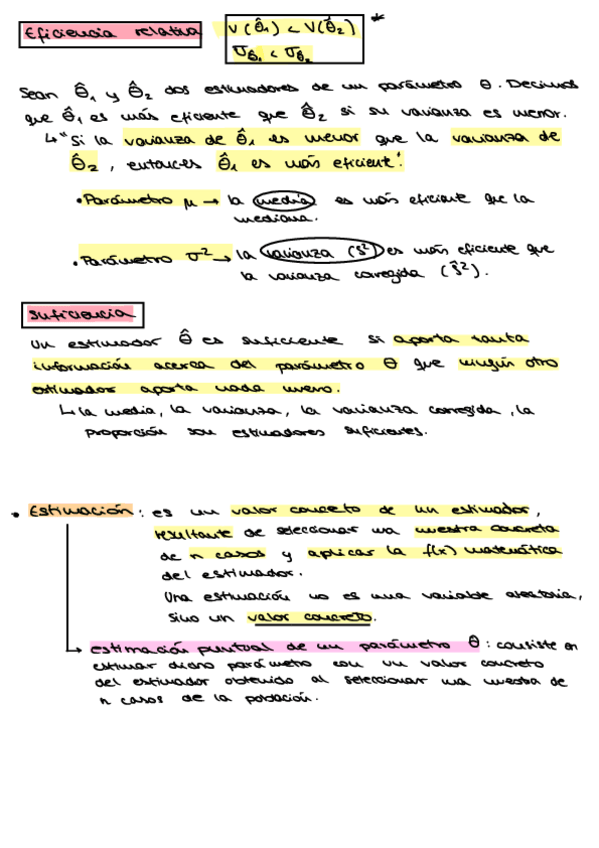 Eficiencia relativa V(θ̂₁) < V(θ̂₂) *
σθ̂₁ < σθ̂₂
Sean θ̂₁ y θ̂₂ dos estimadores de un parámetro θ. Decimos
que θ̂₁ es más eficiente que θ̂₂ si su varianza es menor.
↳ "Si la varianza de θ̂₁ es menor que la varianza de
θ̂₂, entonces θ̂₁ es más eficiente".
• Parámetro μ → la media es más eficiente que la
mediana.
• Parámetro σ² → la varianza (S²) es más eficiente que
la varianza corregida (Ŝ²).
Suficiencia
Un estimador θ̂ es suficiente si aporta tanta
información acerca del parámetro θ que ningún otro
estimador aporta nada nuevo.
↳ la media, la varianza, la varianza corregida, la
proporción son estimadores suficientes.
• Estimación: es un valor concreto de un estimador,
resultante de seleccionar una muestra concreta
de n casos y aplicar la f(x) matemática
del estimador.
Una estimación no es una variable aleatoria,
sino un valor concreto.
→ estimación puntual de un parámetro θ: consiste en
estimar dicho parámetro con un valor concreto
del estimador obtenido al seleccionar una muestra de
n casos de la población.